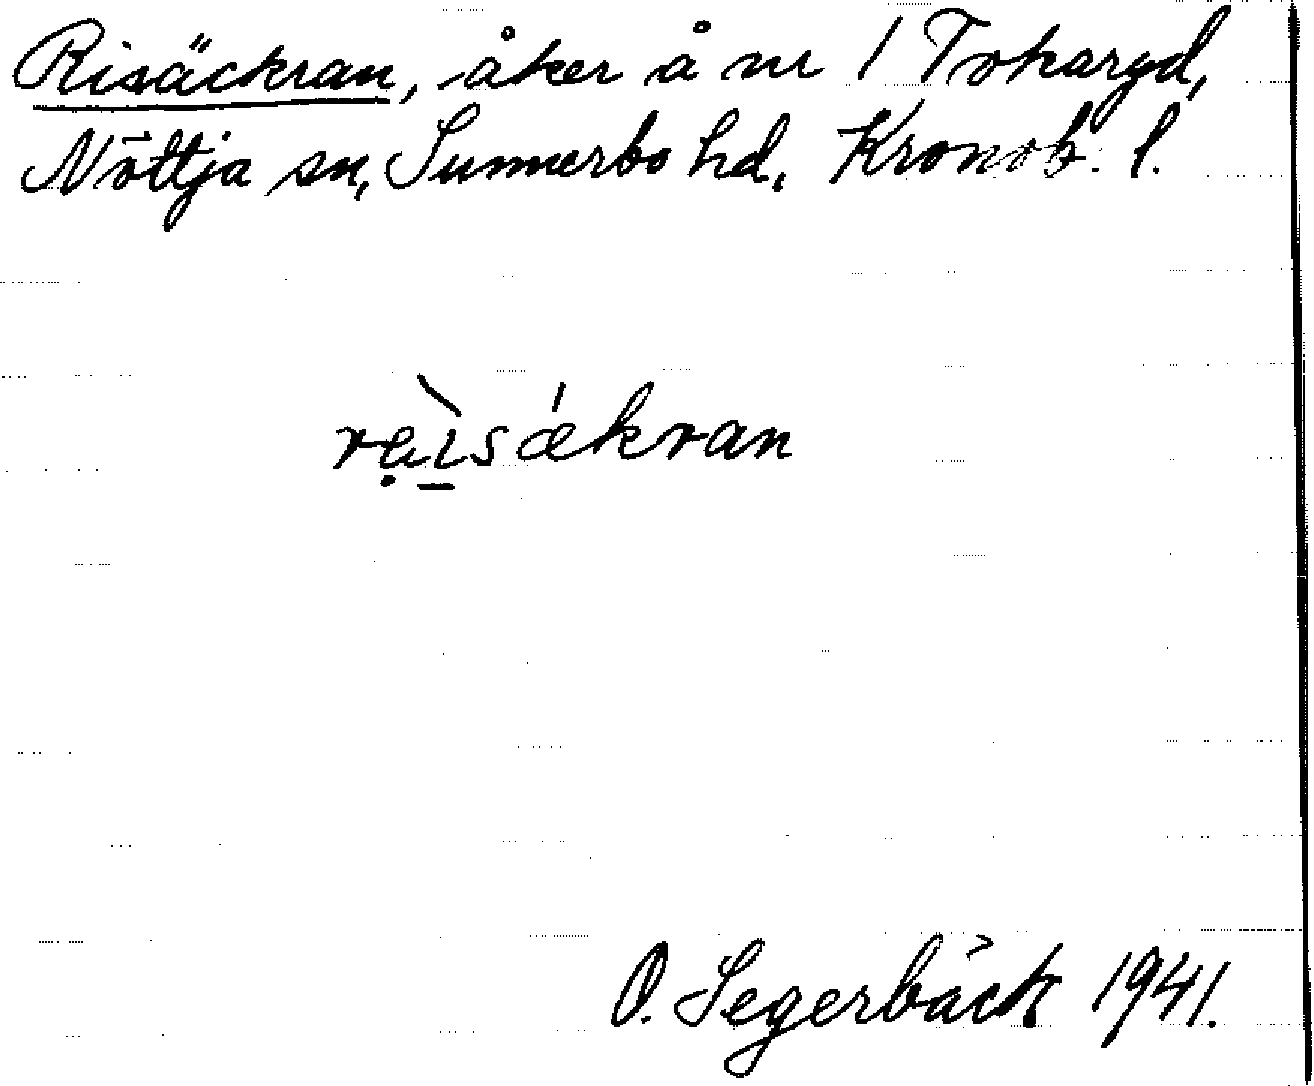 Risäckran, åker å nr 1 Tokaryd,
Nöttja sn, Sunnerbo hd, Kronob. l.
rạì̱sǽkran
O. Segerbäck 1941.